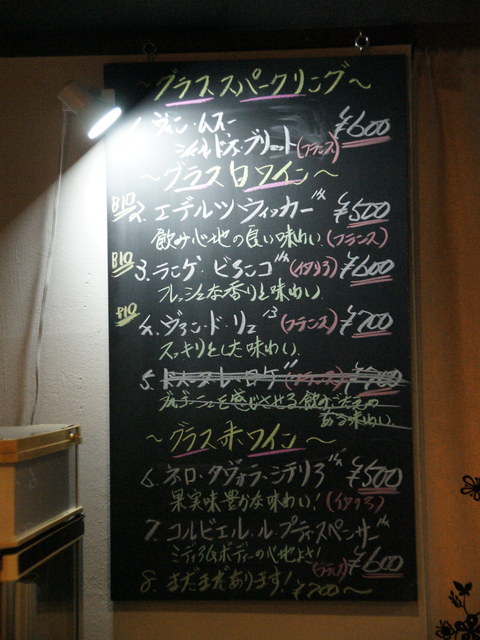 ～グラススパークリング～
1. ジャン・ムスー ¥600
シャルドネ・ブリット (フランス)
～グラス白ワイン～
B10 2. エデルツヴィッカー ¥500
飲み心地の良い味わい (フランス)
B10 3. ランゲ・ビアンコ (イタリア) ¥600
フレッシュな香りと味わい
B10 4. ヴァン・ド・リュ (フランス) ¥700
スッキリとした味わい
5. ¥700
を感じさせる飲みごたえの
ある味わい
～グラス赤ワイン～
6. ネロ・ダヴォラ・シチリア ¥500
果実味豊かな味わい! (イタリア)
7. コルビエル・ル・プティ・スペンサー
ミディアムボディーの心地よさ! (フランス) ¥600
8. まだまだあります! ¥700～